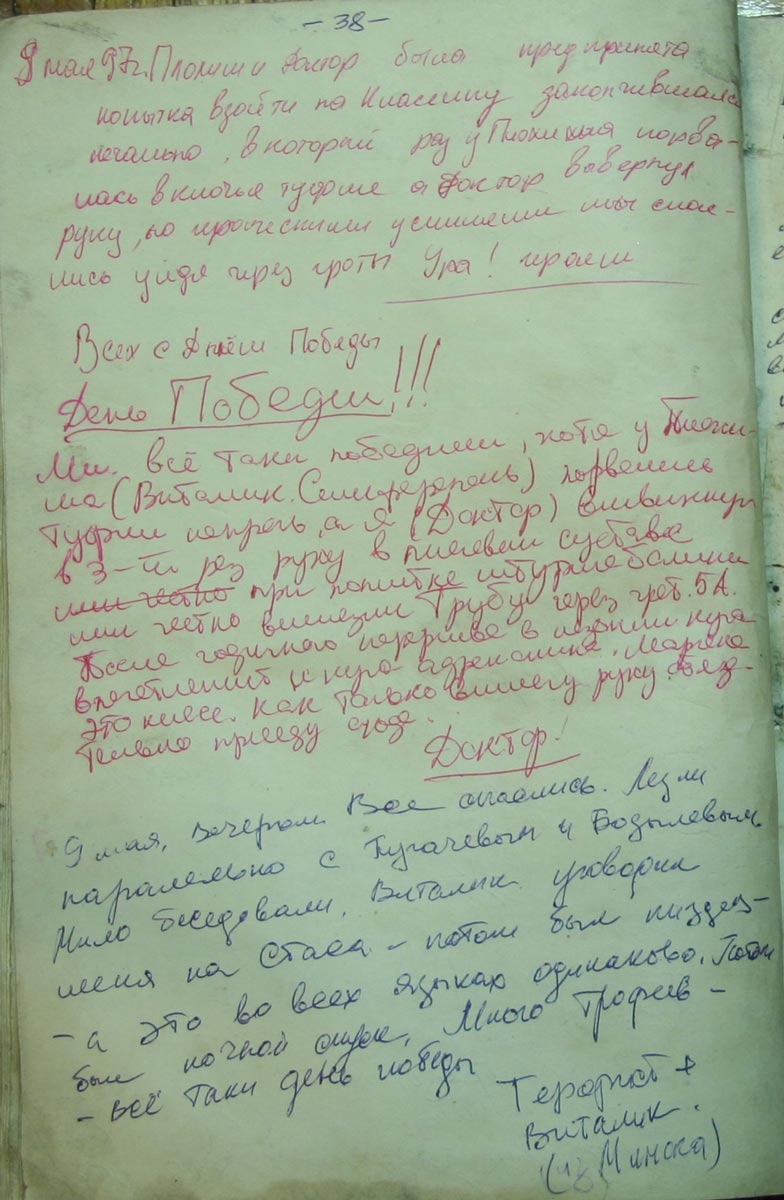 - 38 -
9 мая 97г. и Доктор была предпринята
попытка взойти на Классику закончившаяся
печально, в который раз у порва-
лась в клочья туфля а Доктор вывернул
руку, но героическими усилиями мы спас-
лись уйдя через гроты Ура! героям
Всех с Днём Победы
День Победы!!!
Мы всё таки победили, хотя у
ма (Виталик. Симферополь) порвались
туфли напрочь, а я (Доктор) вывихнул
в 3-ий раз руку в плечевом суставе
при попытке
или честно вылезли Трубу через грот. 5А.
После годичного перерыва в лазании куча
впечатлений и куча адреналина.
это класс. Как только вылечу руку обяза-
тельно приеду сюда.
Доктор!
9 мая, вечером. Все спаслись. Лезли
паралельно с Пугачевым и Бозылевым
Мило беседовали. Виталик уговорил
меня на Стаса - потом был пиздец -
- а это во всех языках одинаково. Потом
был ночной спуск. Много трофеев -
- всё таки день победы
+
Виталик.
(из Минска)